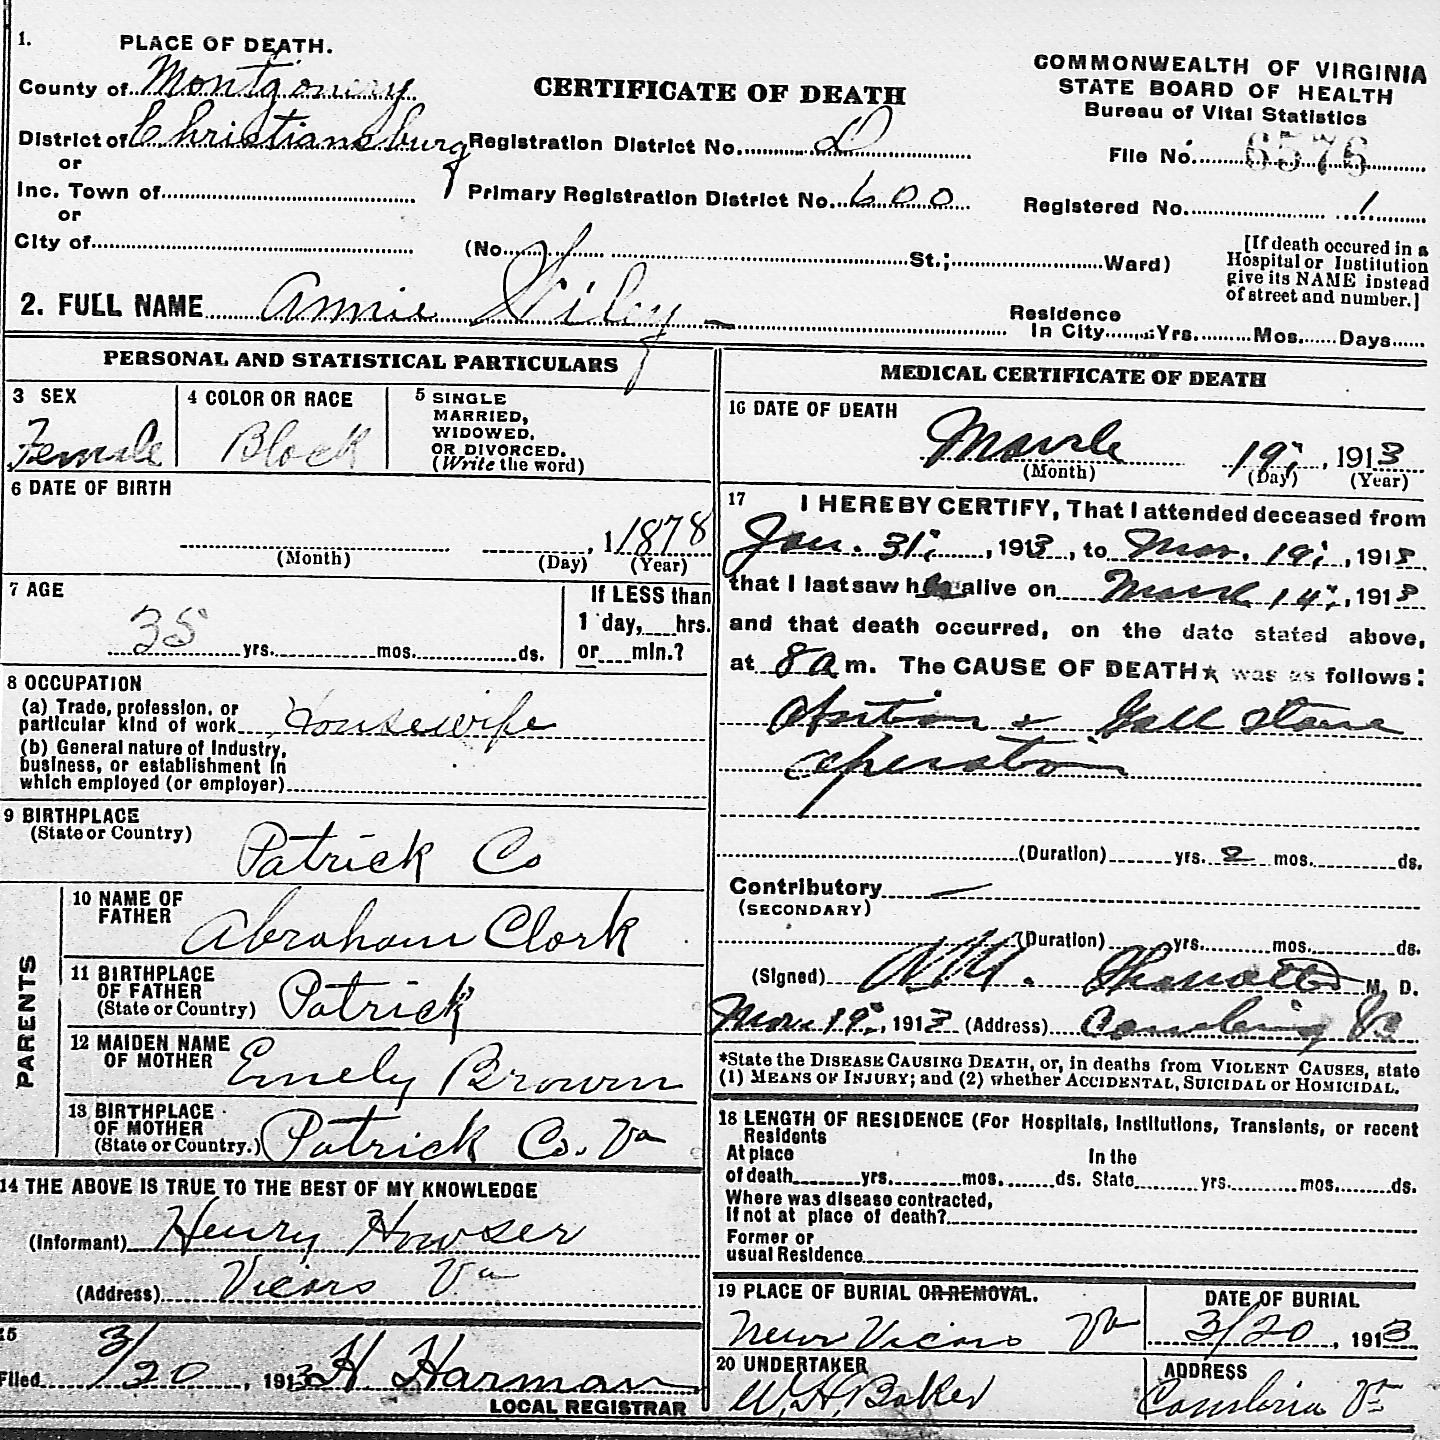 1. PLACE OF DEATH.
County of Montgomery
District of Christiansburg
or
Inc. Town of
or
City of
CERTIFICATE OF DEATH
Registration District No. D
Primary Registration District No. 600
(No. St.; Ward)
COMMONWEALTH OF VIRGINIA
STATE BOARD OF HEALTH
Bureau of Vital Statistics
File No. 6576
Registered No. 1
[If death occured in a
Hospital or Institution
give its NAME instead
of street and number.]
2. FULL NAME Annie Wiley
Residence
In City Yrs. Mos. Days
PERSONAL AND STATISTICAL PARTICULARS
3 SEX
Female
4 COLOR OR RACE
Black
5 SINGLE
MARRIED,
WIDOWED,
OR DIVORCED.
(Write the word)
6 DATE OF BIRTH
, 1 1878
(Month) (Day) (Year)
7 AGE
35 yrs. mos. ds.
If LESS than
1 day, hrs.
or min.?
8 OCCUPATION
(a) Trade, profession, or
particular kind of work Housewife
(b) General nature of Industry,
business, or establishment in
which employed (or employer)
9 BIRTHPLACE
(State or Country)
Patrick Co
PARENTS
10 NAME OF
FATHER
Abraham Clark
11 BIRTHPLACE
OF FATHER
(State or Country)
Patrick
12 MAIDEN NAME
OF MOTHER
Emely Brown
13 BIRTHPLACE
OF MOTHER
(State or Country.) Patrick Co. Va
14 THE ABOVE IS TRUE TO THE BEST OF MY KNOWLEDGE
(Informant) Henry Howser
(Address) Vicars Va
15
Filed 3/20, 1913 H Harman
LOCAL REGISTRAR
MEDICAL CERTIFICATE OF DEATH
16 DATE OF DEATH
March 19, 1913
(Month) (Day) (Year)
17 I HEREBY CERTIFY, That I attended deceased from
Jan. 31, 1913, to Mar. 19, 1913
that I last saw h alive on March 14, 1913
and that death occurred, on the date stated above,
at 8 a m. The CAUSE OF DEATH* was as follows:
& Gall stone
operation
(Duration) yrs. 2 mos. ds.
Contributory
(SECONDARY)
(Duration) yrs. mos. ds.
(Signed) M. D.
Mar. 19, 1913 (Address) Va
*State the DISEASE CAUSING DEATH, or, in deaths from VIOLENT CAUSES, state
(1) MEANS OF INJURY; and (2) whether ACCIDENTAL, SUICIDAL or HOMICIDAL.
18 LENGTH OF RESIDENCE (For Hospitals, Institutions, Transients, or recent
Residents
At place In the
of death yrs. mos. ds. State yrs. mos. ds.
Where was disease contracted,
If not at place of death?
Former or
usual Residence
19 PLACE OF BURIAL OR REMOVAL.
Near Vicars Va
DATE OF BURIAL
3/20, 1913
20 UNDERTAKER
W. H. Baker
ADDRESS
Cambria Va